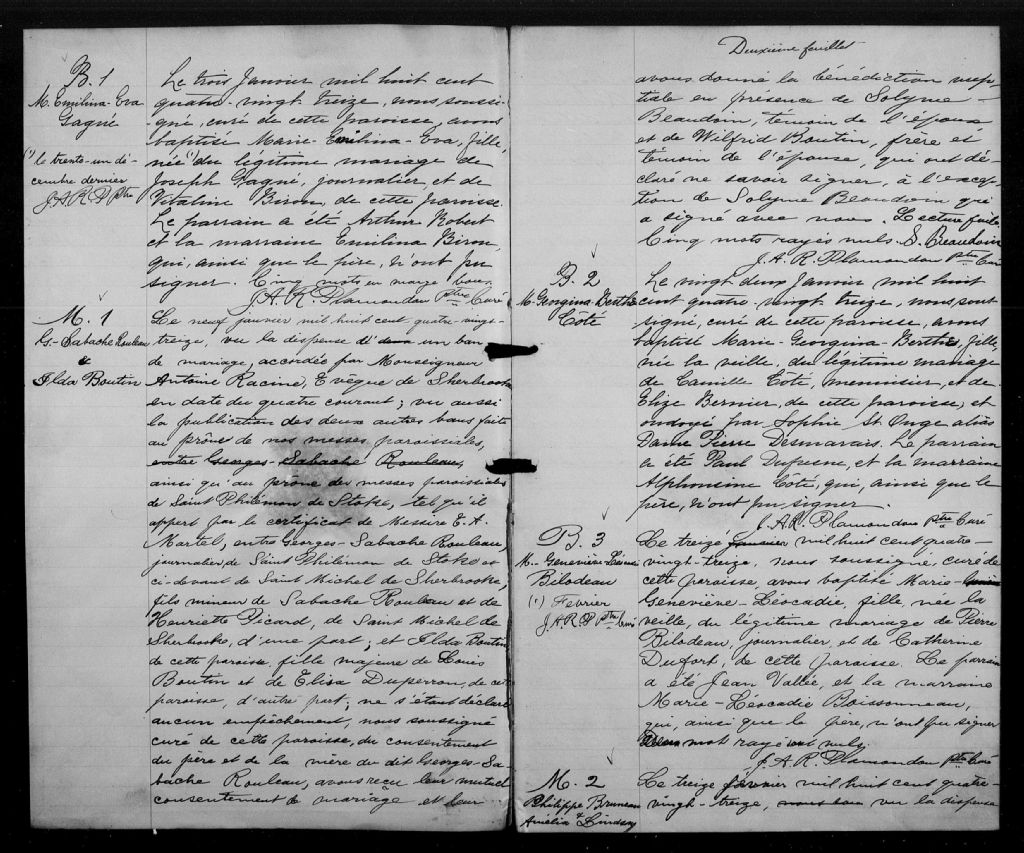 B. 1
M. Emilina-Eva
Gagné
(1) le trente-un dé-
cembre dernier
J.A.R.P. ptre
Le trois Janvier mil huit cent
quatre-vingt treize, nous soussi-
gné, curé de cette paroisse, avons
baptisé Marie-Emilina-Eva, fille,
née (1) du légitime mariage de
Joseph Gagné, journalier, et de
Vitaline Biron, de cette paroisse.
Le parrain a été Arthur Robert
et la marraine Emilina Biron,
qui, ainsi que le père, n'ont pu
signer. Cinq mots en marge bons.
J.A.R. Plamondon Ptre Curé
M. 1
G.-Sabache Rouleau
&
Ilda Boutin
Le neuf janvier mil huit cent quatre-vingt-
treize, vu la dispense d'un ban
de mariage, accordée par Monseigneur
Antoine Racine, Evêque de Sherbrooke
en date du quatre courant; vu aussi
la publication des deux autres bans faite
au prône de nos messes paroissiales,
entre Georges-Sabache Rouleau,
ainsi qu'au prône des messes paroissiales
de Saint Philémon de Stoke, tel qu'il
appert par le certificat de Messire E. A.
Martel, entre Georges-Sabache Rouleau,
journalier, de Saint Philémon de Stoke et
ci-devant de Saint Michel de Sherbrooke,
fils mineur de Sabache Rouleau et de
Henriette Picard, de Saint Michel de
Sherbrooke, d'une part; et Ilda Boutin
de cette paroisse, fille majeure de Louis
Boutin et de Elisa Duperron, de cette
paroisse, d'autre part; ne s'étant déclaré
aucun empêchement, nous soussigné
curé de cette paroisse, du consentement
du père et de la mère du dit Georges-Sa-
bache Rouleau, avons reçu leur mutuel
consentement de mariage et leur
Deuxième feuillet
avons donné la bénédiction nup-
tiale en présence de Solyme
Beaudoin, témoin de l'époux
et de Wilfrid Boutin, frère et
témoin de l'épouse, qui ont dé-
claré ne savoir signer, à l'excep-
tion de Solyme Beaudoin qui
a signé avec nous. Lecture faite.
Cinq mots rayés nuls. S. Beaudoin
J.A.R. Plamondon Ptre Curé
B. 2
M. Georgina Berthe
Côté
Le vingt deux Janvier mil huit
cent quatre-vingt treize, nous, sous-
signé, curé de cette paroisse, avons
baptisé Marie-Georgina-Berthe, fille,
née la veille, du légitime mariage
de Camille Côté, menuisier, et de
Elize Bernier, de cette paroisse, et
ondoyé par Sophie St Onge aliàs
Dame Pierre Desmarais. Le parrain
a été Paul Dufresne, et la marraine
Alphonsine Côté, qui, ainsi que le
père, n'ont pu signer.
J.A.R. Plamondon Ptre Curé
B. 3
M.-Geneviève Léocadie
Bilodeau
(1) Fevrier
J.A.R.P. Ptre Curé
Le treize Janvier mil huit cent quatre-
vingt-treize, nous soussigné, curé de
cette paroisse, avons baptisé Marie-
Geneviève-Léocadie, fille, née la
veille, du légitime mariage de Pierre
Bilodeau, journalier, et de Catherine
Dufort, de cette paroisse. Le parrain
a été Jean Vallée, et la marraine
Marie-Léocadie Boissonneau,
qui, ainsi que le père, n'ont pu signer
mot rayé nuls.
J.A.R. Plamondon Ptre Curé
M. 2
Philippe Bruneau
&
Amélia Lindsay
Le treize février mil huit cent quatre-
vingt-treize, vu la dispense